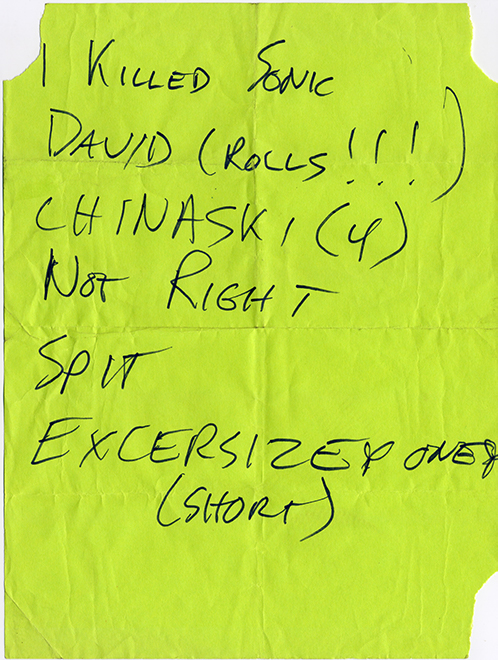 I KILLED SONIC
DAVID (ROLLS!!!)
CHINASKI (4)
NOT RIGHT
SPIT
EXCERSIZER ONER
(SHORT)